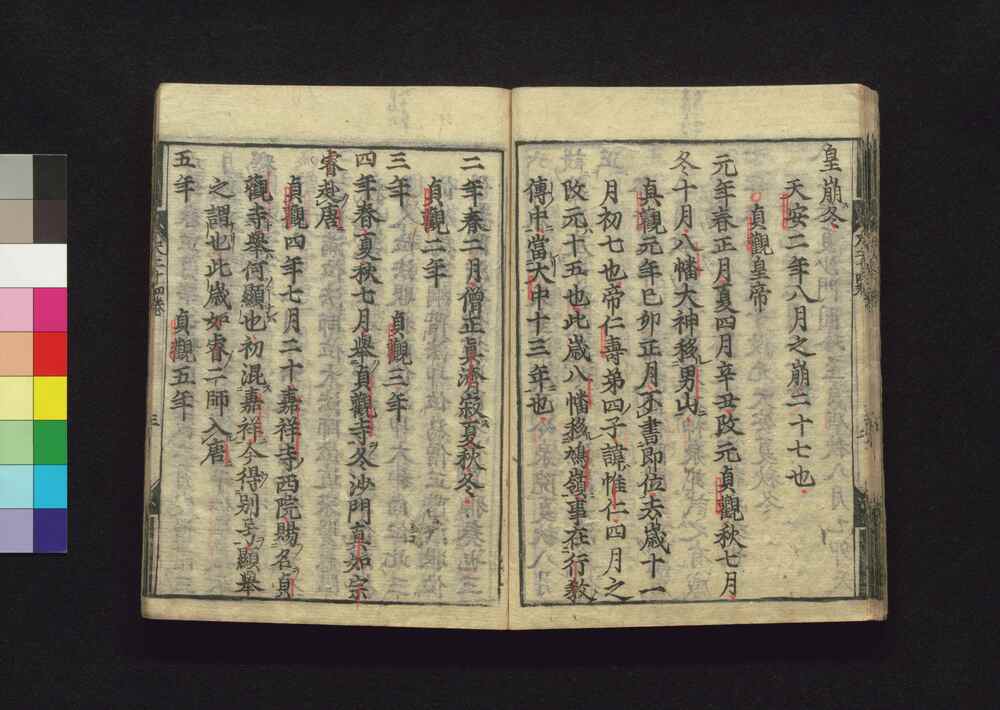 皇崩冬
天安二年八月之崩二十七也
貞觀皇帝
元年春正月夏四月辛丑改元貞觀秋七月
冬十月八幡大神移男山
貞觀元年已卯正月不書即位去歲十一
月初七也帝仁壽弟四子諱惟仁四月之
改元十五也此歲八幡移鳩嶺事在行教
傳中當大中十三年也
二年春二月僧正眞濟寂夏秋冬
貞觀二年
三年　貞觀三年
四年春夏秋七月舉貞觀寺冬沙門真如宗
睿赴唐
貞觀四年七月二十嘉祥寺西院賜名貞
觀寺舉何顯也初混嘉祥今得别号顯舉
之謂也此歲如睿二師入唐
五年　貞觀五年
三